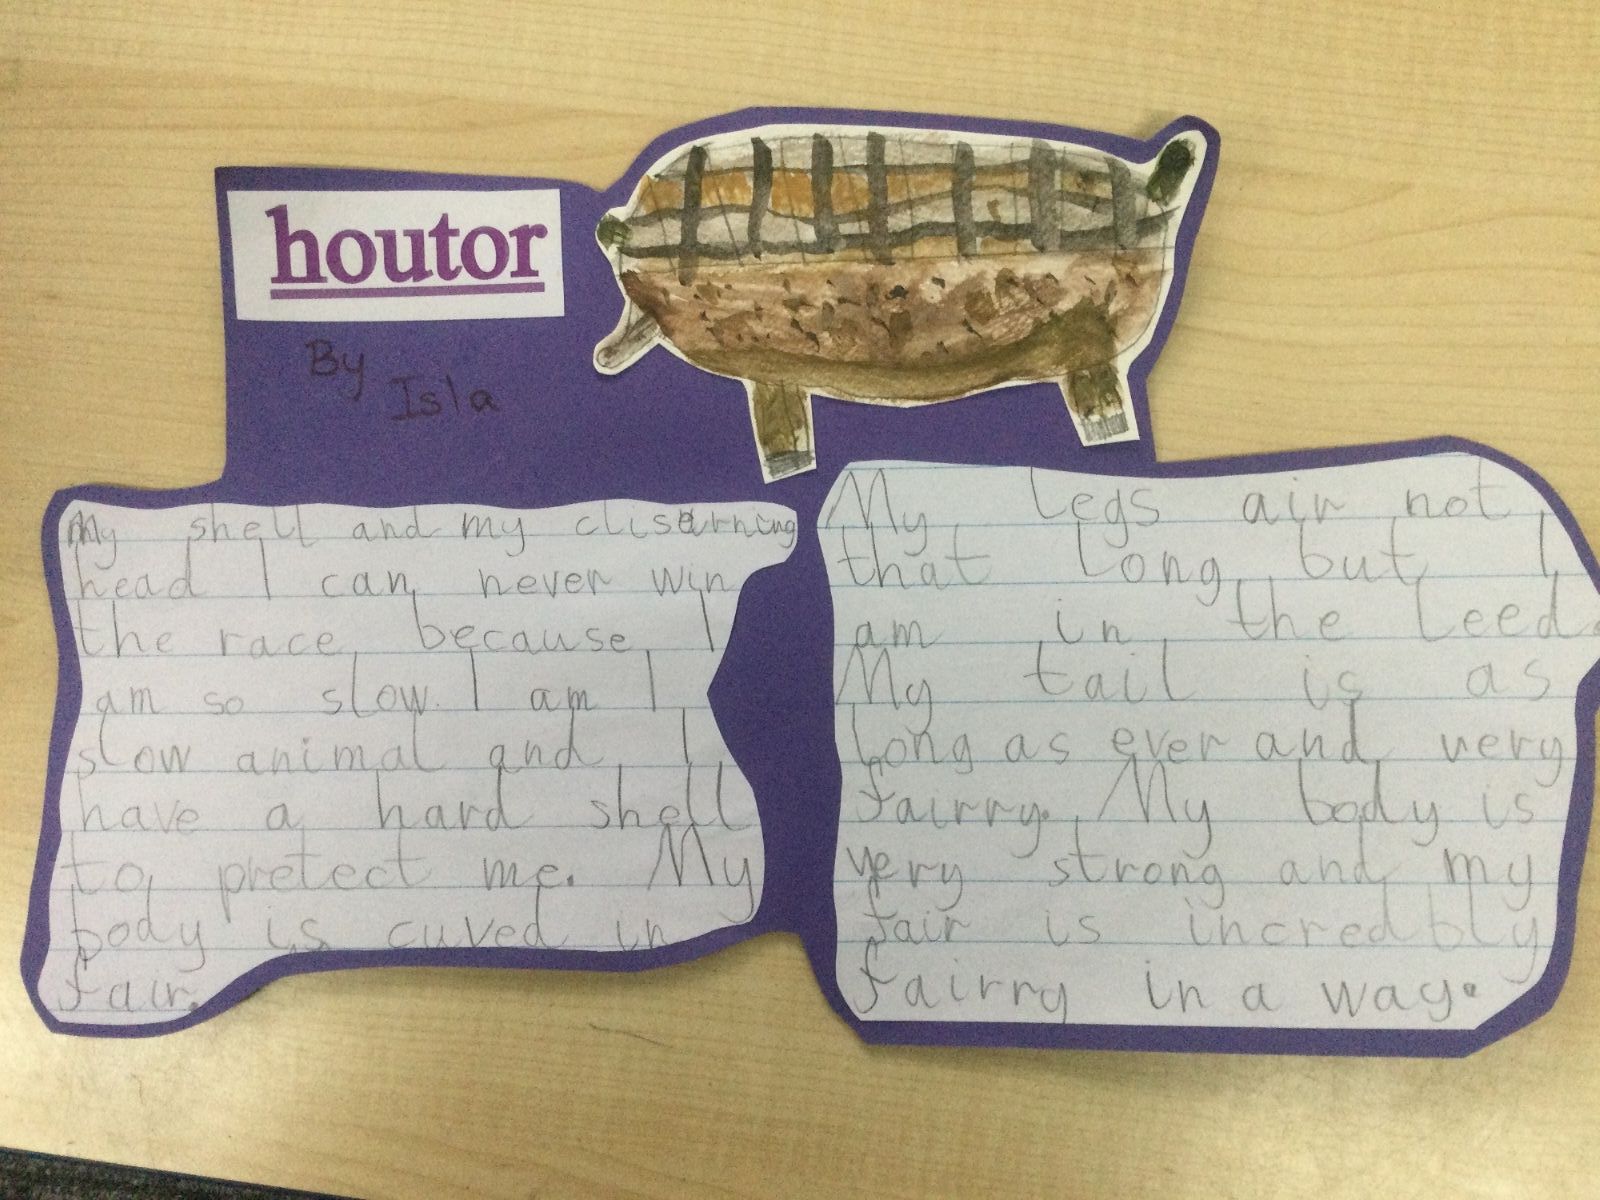 houtor
By
Isla
My shell and my
head I can never win
the race because I
am so slow. I am I
slow animal and I
have a hard shell
to pretect me. My
body is cuved in
fair.
My legs air not
that long but I
am in the leed.
My tail is as
long as ever and very
fairry. My body is
very strong and my
fair is incredbly
fairry in a way.